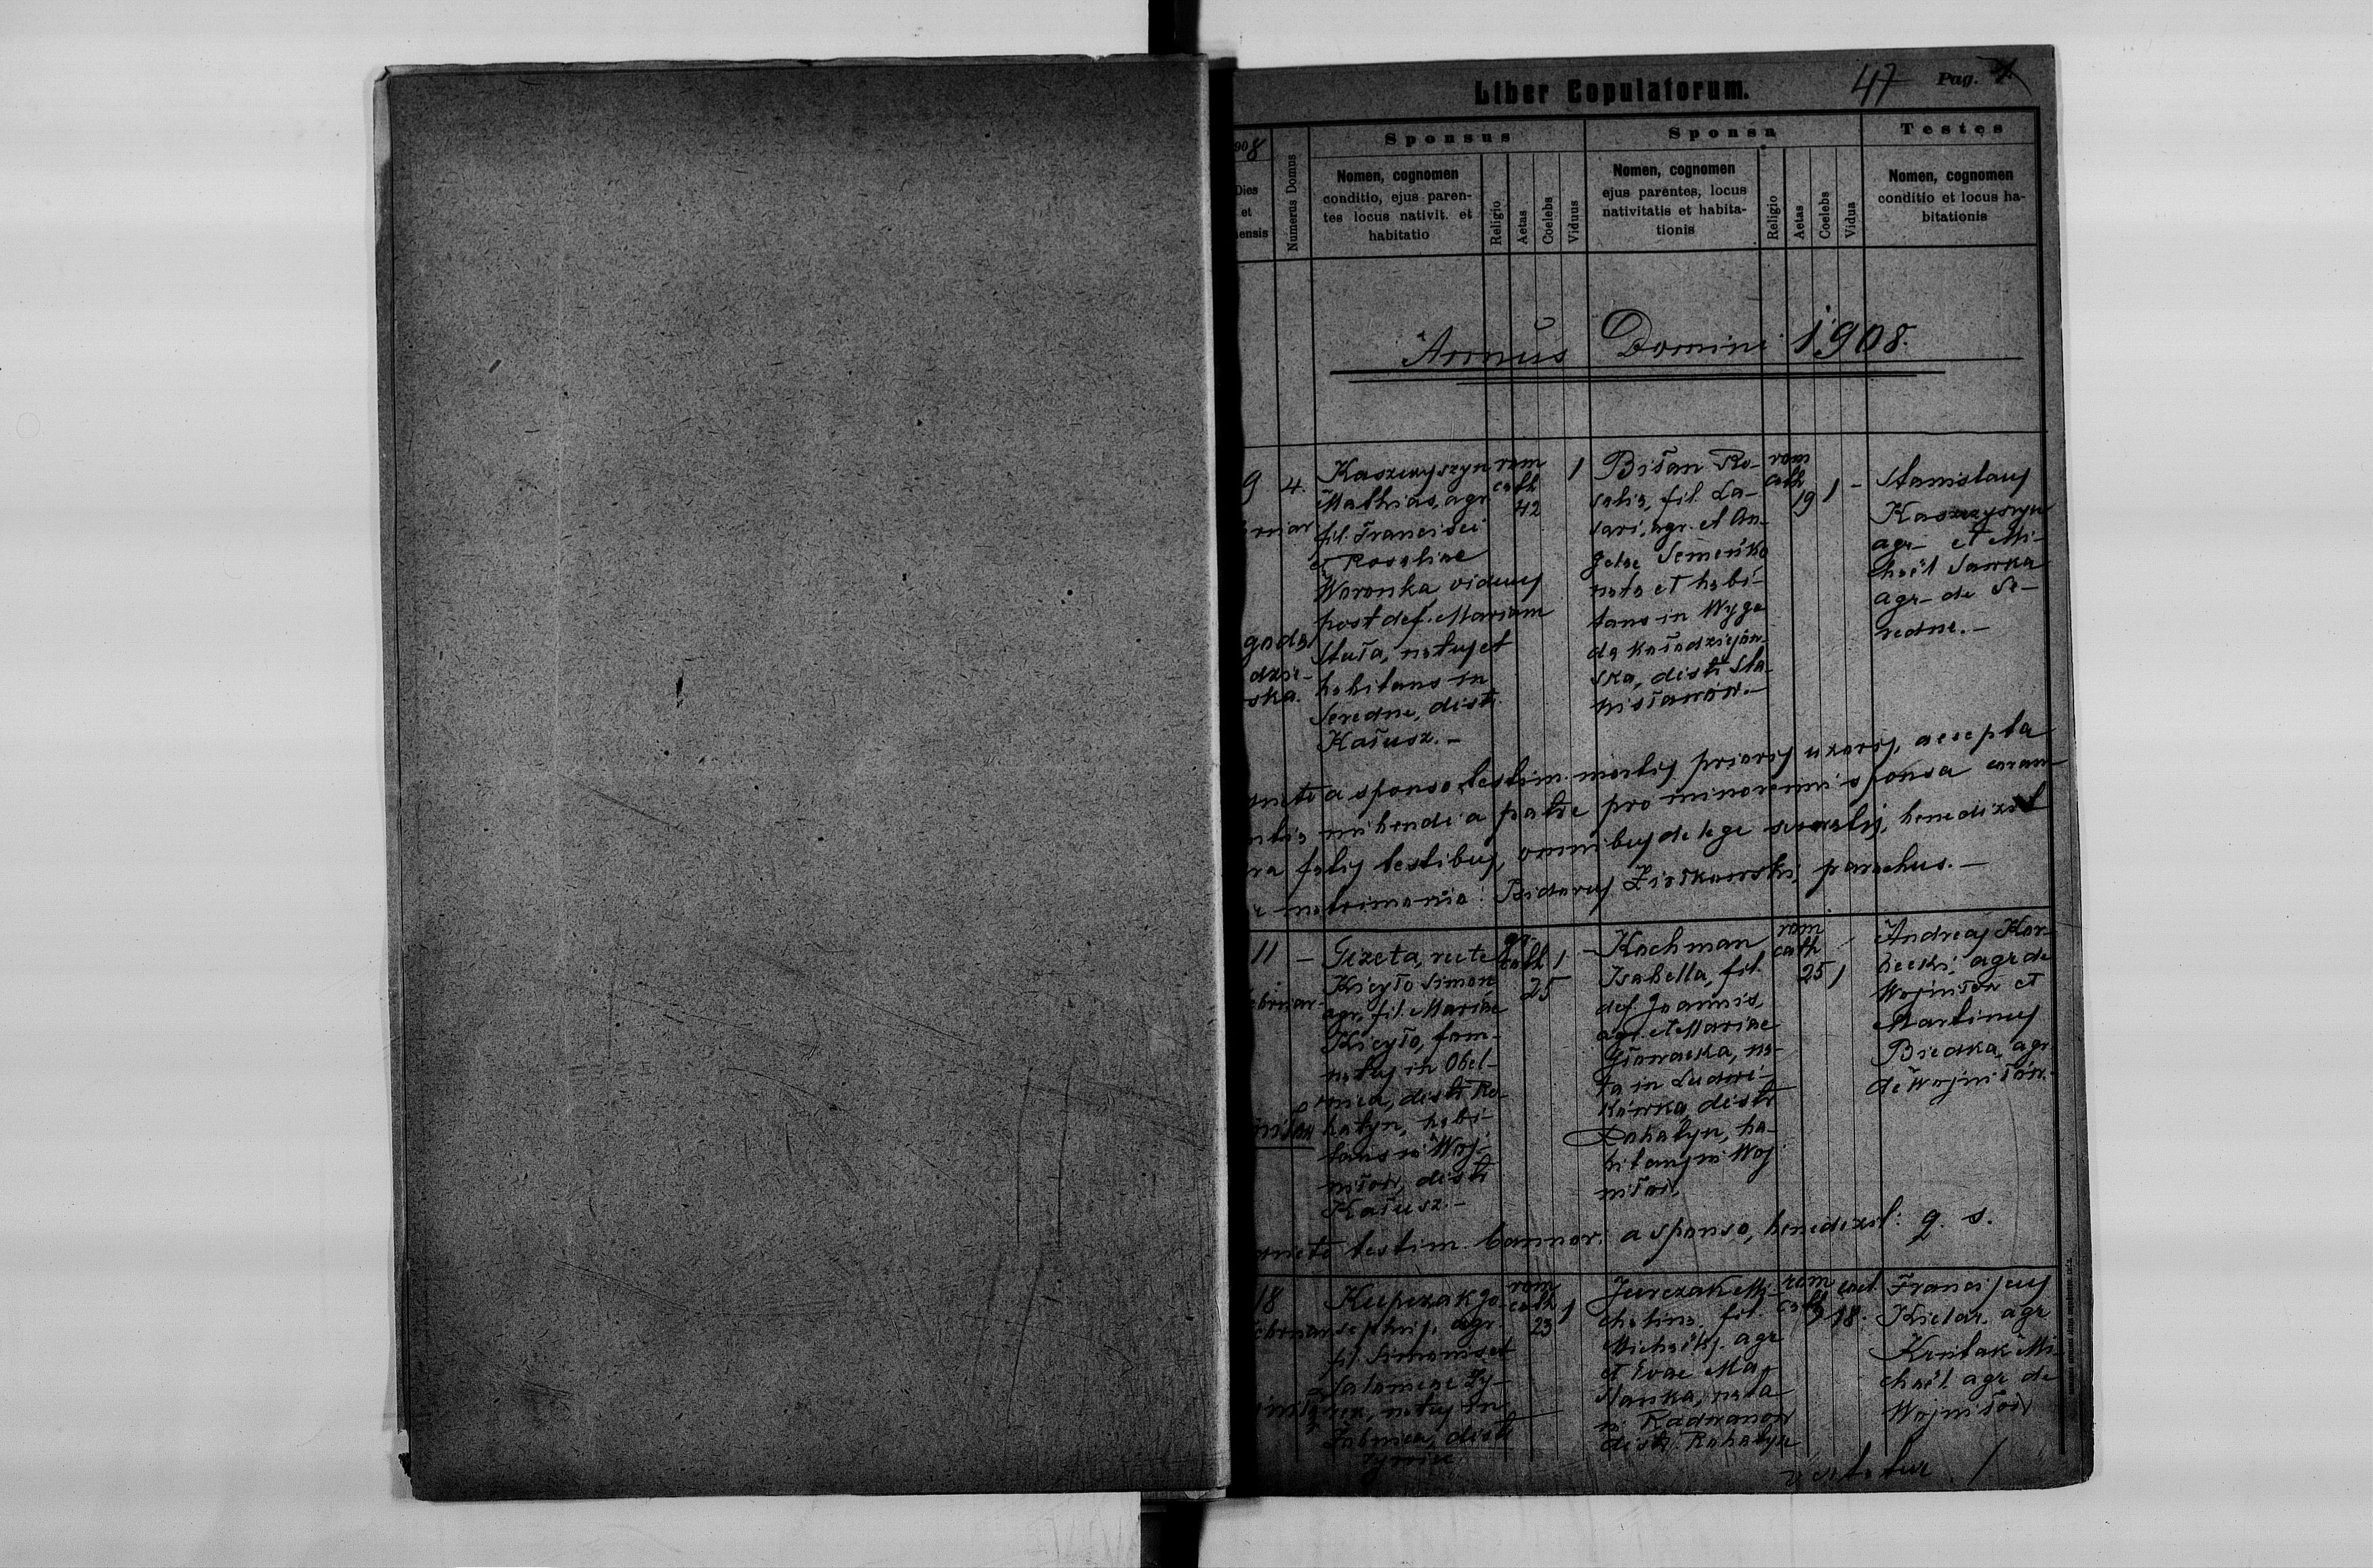 Liber Copulatorum.
47 Pag.
Sponsus Sponsa Testes
908
Dies et ensis
Numerus Domus
Nomen, cognomen
conditio, ejus paren-
tes locus nativit. et
habitatio
Religio
Aetas
Coelebs
Viduus
Nomen, cognomen
ejus parentes, locus
nativitatis et habita-
tionis
Religio
Aetas
Coelebs
Vidua
Nomen, cognomen
conditio et locus ha-
bitationis
Annus Domini 1908.
9
4.
goda
dzie-
ska.
Kaszczyszyn
Mathias, agr.
fil. Francisci
et Rosaliae
Woronka, viduus
post def. Mariam
Stuła, natus et
habitans in
Seredne, distr.
Kałusz. -
rom
cath
42
1
Bitan Ro-
salia, fil. La-
zari, agr. et An-
gelae Semeńko
nata et habi-
tans in Wygo
da kołodziejów-
ska, distr. Sta-
nisławów. -
rom
cath
19
1
-
Stanislaus
Kaszczyszyn
agr. et Mi-
chaël Sawka
agr. de Se-
redne. -
a sponso testim. mortis prioris uxoris, accepta
nubendi a patre pro minorenni sponsa coram
testibus, omnibus de lege servatis, benedixit
matrimonio: Isidorus Ziółkowski, parochus. -
11
-
Gizeta, recte
Kicyło Simon
agr. fil. Mariae
Kicyło, fam-
natus in Obel-
nica, distr. Ro-
hatyn, habi-
tans in Woj-
niłow, distr
Kałusz. -
gr.
cath
25
1
-
Kochman
Isabella, fil.
def. Joannis,
agr. et Mariae
Głowacka, na-
ta in Ludwi-
kówka, distr
Rohatyn, ha-
bitans in Woj
niłow.
rom
cath
25
1
Andreas Kor-
becki, agr de
Wojniłow et
Martinus
Biedka, agr.
de Wojniłów.
testim. bannor. a sponso, benedixit: q. s.
18
Kupczak Jo-
sephus, agr.
fil. Simonis et
Salomeae
natus in
distr
Żywiec
rom
cath
23
1
Jurczak Mi-
chalina, fil.
Michaëlis, agr
et Evae Ma-
ślanka, nata
in Radwanow
distr. Rohatyn
rom
cath
coel.
18.
Franciscus
Kietar, agr
Krutak Mi-
chaël agr de
Wojniłow
vertatur /